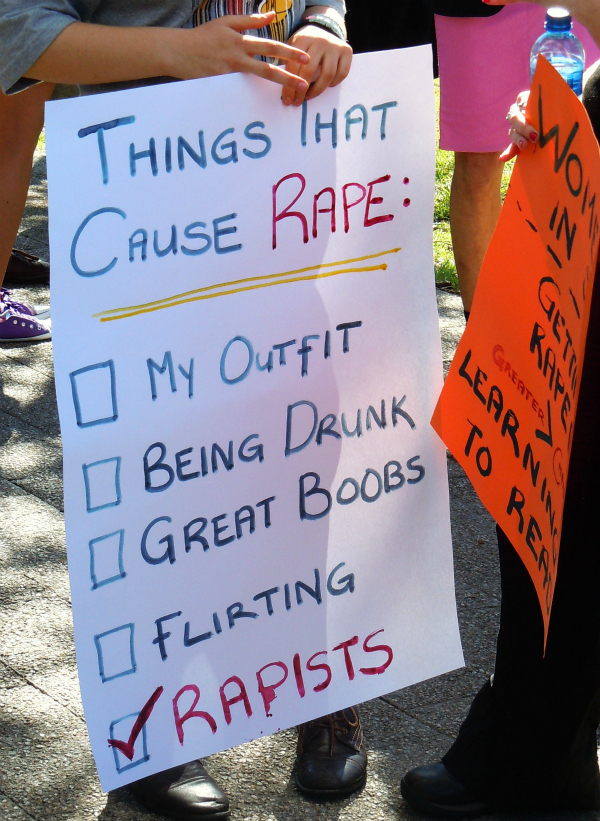 THINGS THAT
CAUSE RAPE:
MY OUTFIT
BEING DRUNK
GREAT BOOBS
FLIRTING
RAPISTS
IN
RAPE
GREATER
LEARNING
TO READ